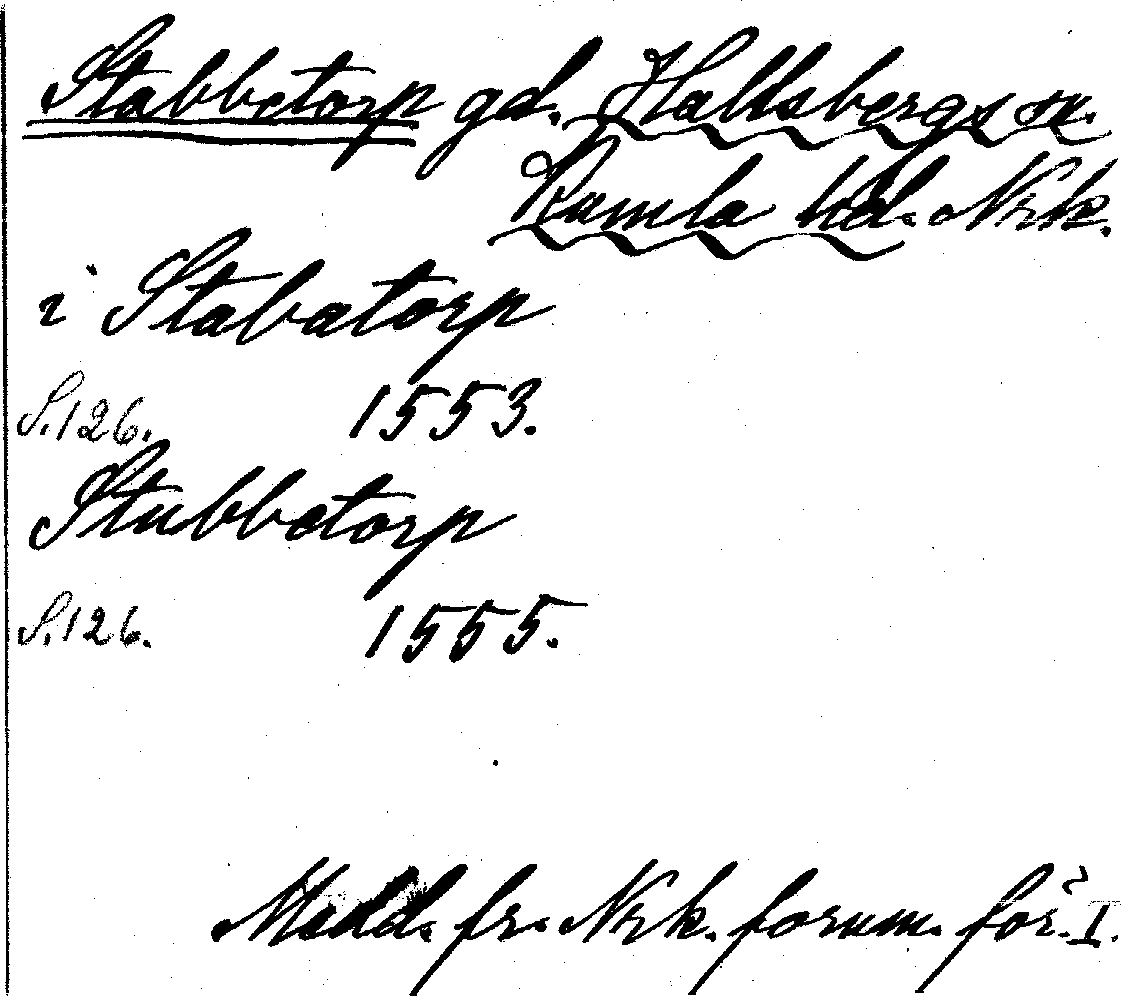 Stabbetorp gd. Hallsbergs sn.
Kumla hd. Nrk.
i Stabatorp
S. 126. 1553.
Stubbetorp
S. 126. 1555.
Medd. fr. Nrk. fornm. för. I.